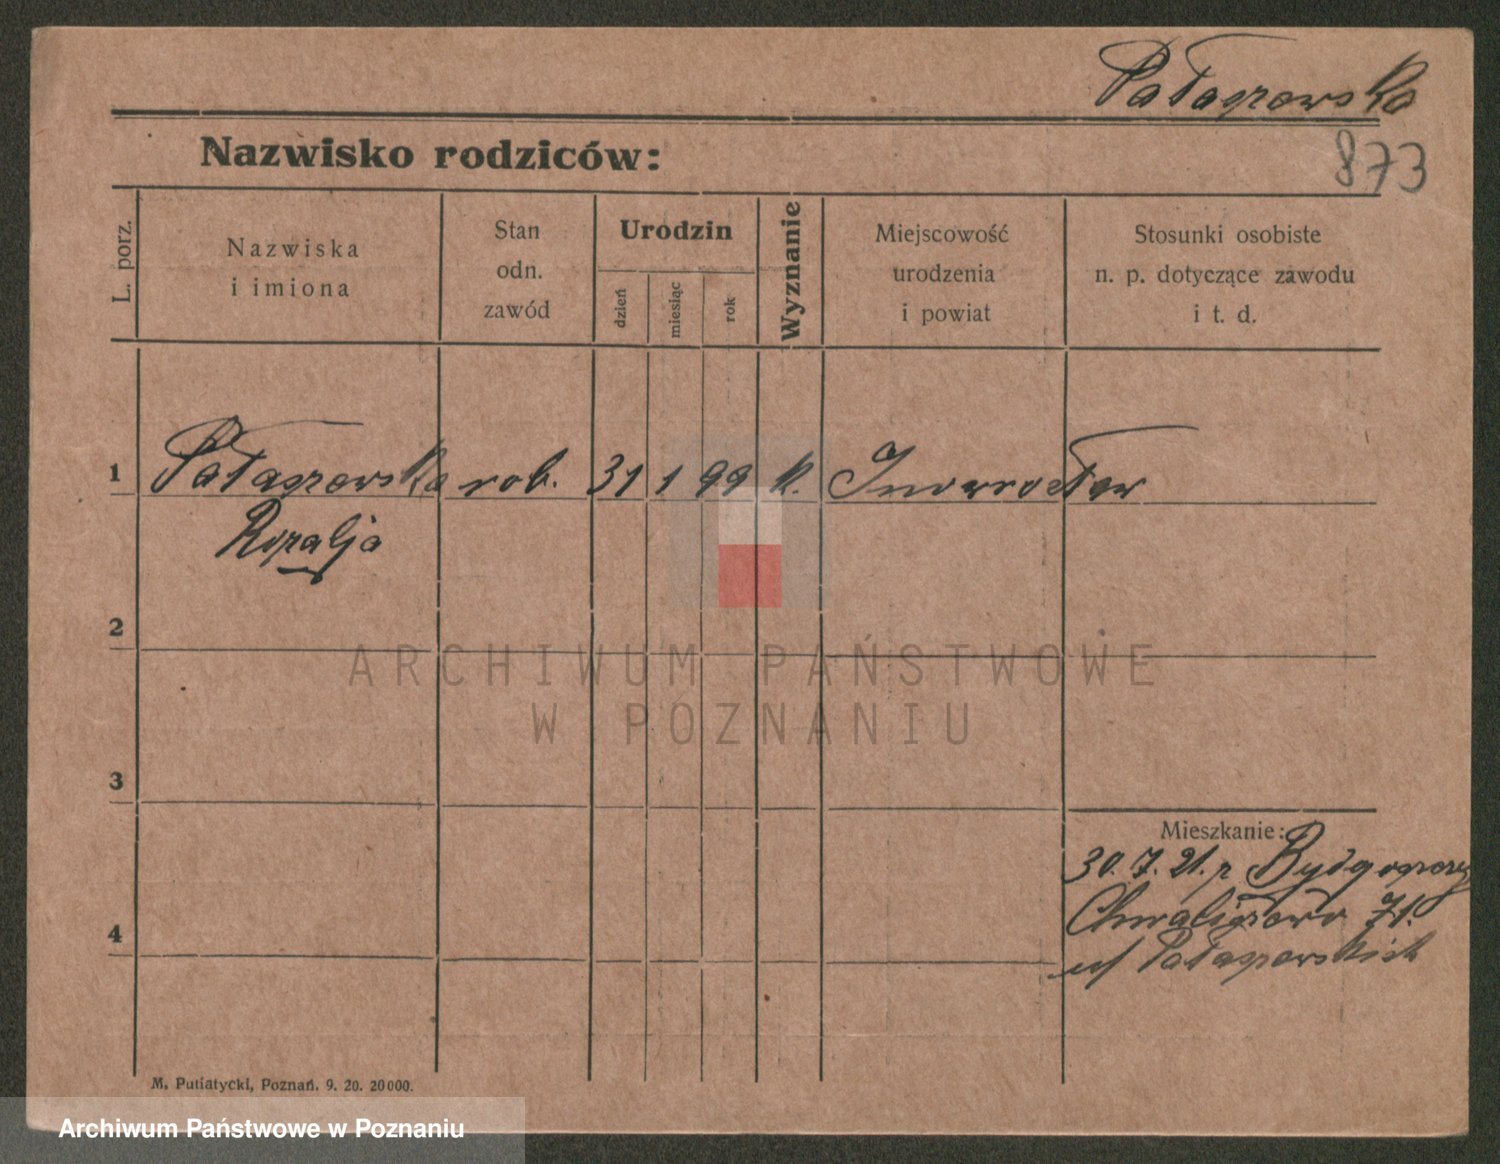 Pałaszewska
Nazwisko rodziców:
873
L. porz.
Nazwiska
i imiona
Stan
odn.
zawód
Urodzin
dzień
miesiąc
rok
Wyznanie
Miejscowość
urodzenia
i powiat
Stosunki osobiste
n. p. dotyczące zawodu
i t. d.
1 Pałaszewska rob. 31 1 99 k. Inowrocław
Rozalja
2
ARCHIWUM PAŃSTWOWE
W POZNANIU
3
Mieszkanie:
30. 7. 21. z Bydgoszczy
71.
4
M. Putiatycki, Poznań. 9. 20. 20000.
Archiwum Państwowe w Poznaniu